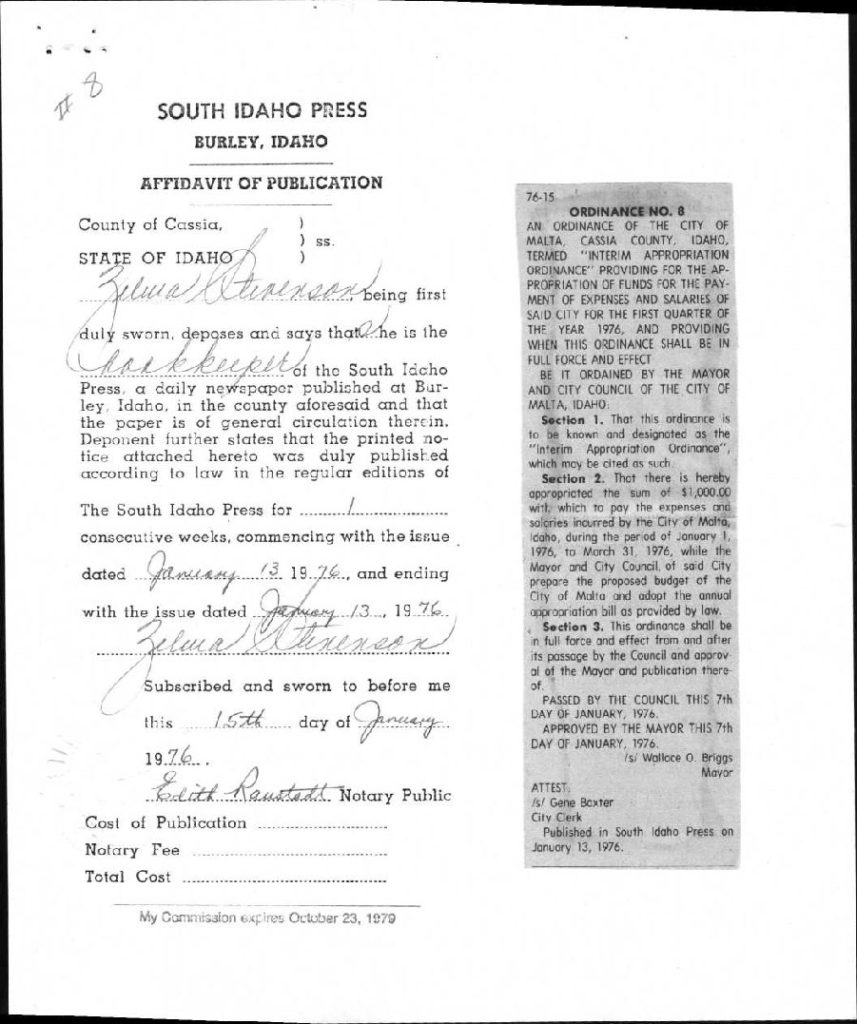 # 8
SOUTH IDAHO PRESS
BURLEY, IDAHO
AFFIDAVIT OF PUBLICATION
County of Cassia, )
) ss.
STATE OF IDAHO )
Zelma Stevenson being first
duly sworn, deposes and says that she is the
bookkeeper of the South Idaho
Press, a daily newspaper published at Bur-
ley, Idaho, in the county aforesaid and that
the paper is of general circulation therein.
Deponent further states that the printed no-
tice attached hereto was duly published
according to law in the regular editions of
The South Idaho Press for 1
consecutive weeks, commencing with the issue
dated January 13 1976, and ending
with the issue dated January 13, 1976
Zelma Stevenson
Subscribed and sworn to before me
this 15th day of January
1976.
Edith Notary Public
Cost of Publication
Notary Fee
Total Cost
My Commission expires October 23, 1979
76-15
ORDINANCE NO. 8
AN ORDINANCE OF THE CITY OF
MALTA, CASSIA COUNTY, IDAHO,
TERMED "INTERIM APPROPRIATION
ORDINANCE" PROVIDING FOR THE AP-
PROPRIATION OF FUNDS FOR THE PAY-
MENT OF EXPENSES AND SALARIES OF
SAID CITY FOR THE FIRST QUARTER OF
THE YEAR 1976, AND PROVIDING
WHEN THIS ORDINANCE SHALL BE IN
FULL FORCE AND EFFECT
BE IT ORDAINED BY THE MAYOR
AND CITY COUNCIL OF THE CITY OF
MALTA, IDAHO:
Section 1. That this ordinance is
to be known and designated as the
"Interim Appropriation Ordinance",
which may be cited as such.
Section 2. That there is hereby
appropriated the sum of $1,000.00
with which to pay the expenses and
salaries incurred by the City of Malta,
Idaho, during the period of January 1,
1976, to March 31, 1976, while the
Mayor and City Council of said City
prepare the proposed budget of the
City of Malta and adopt the annual
appropriation bill as provided by law.
Section 3. This ordinance shall be
in full force and effect from and after
its passage by the Council and approv-
al of the Mayor and publication there-
of.
PASSED BY THE COUNCIL THIS 7th
DAY OF JANUARY, 1976.
APPROVED BY THE MAYOR THIS 7th
DAY OF JANUARY, 1976.
/s/ Wallace O. Briggs
Mayor
ATTEST:
/s/ Gene Baxter
City Clerk
Published in South Idaho Press on
January 13, 1976.